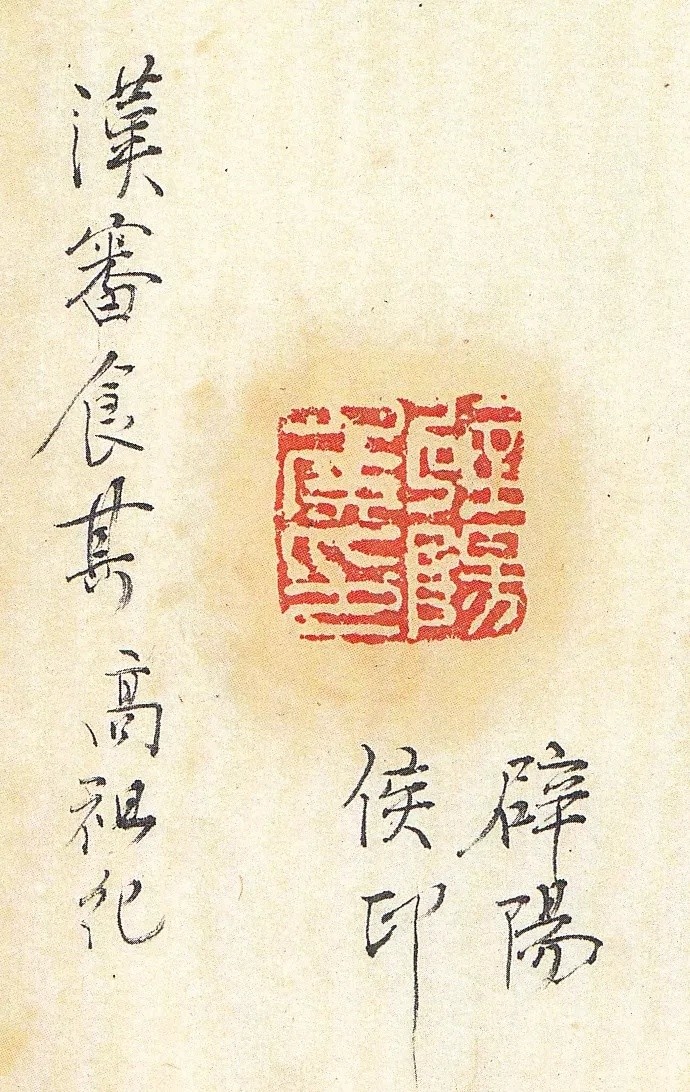 辟陽
侯印
辟陽
侯印
漢審食其 高祖紀